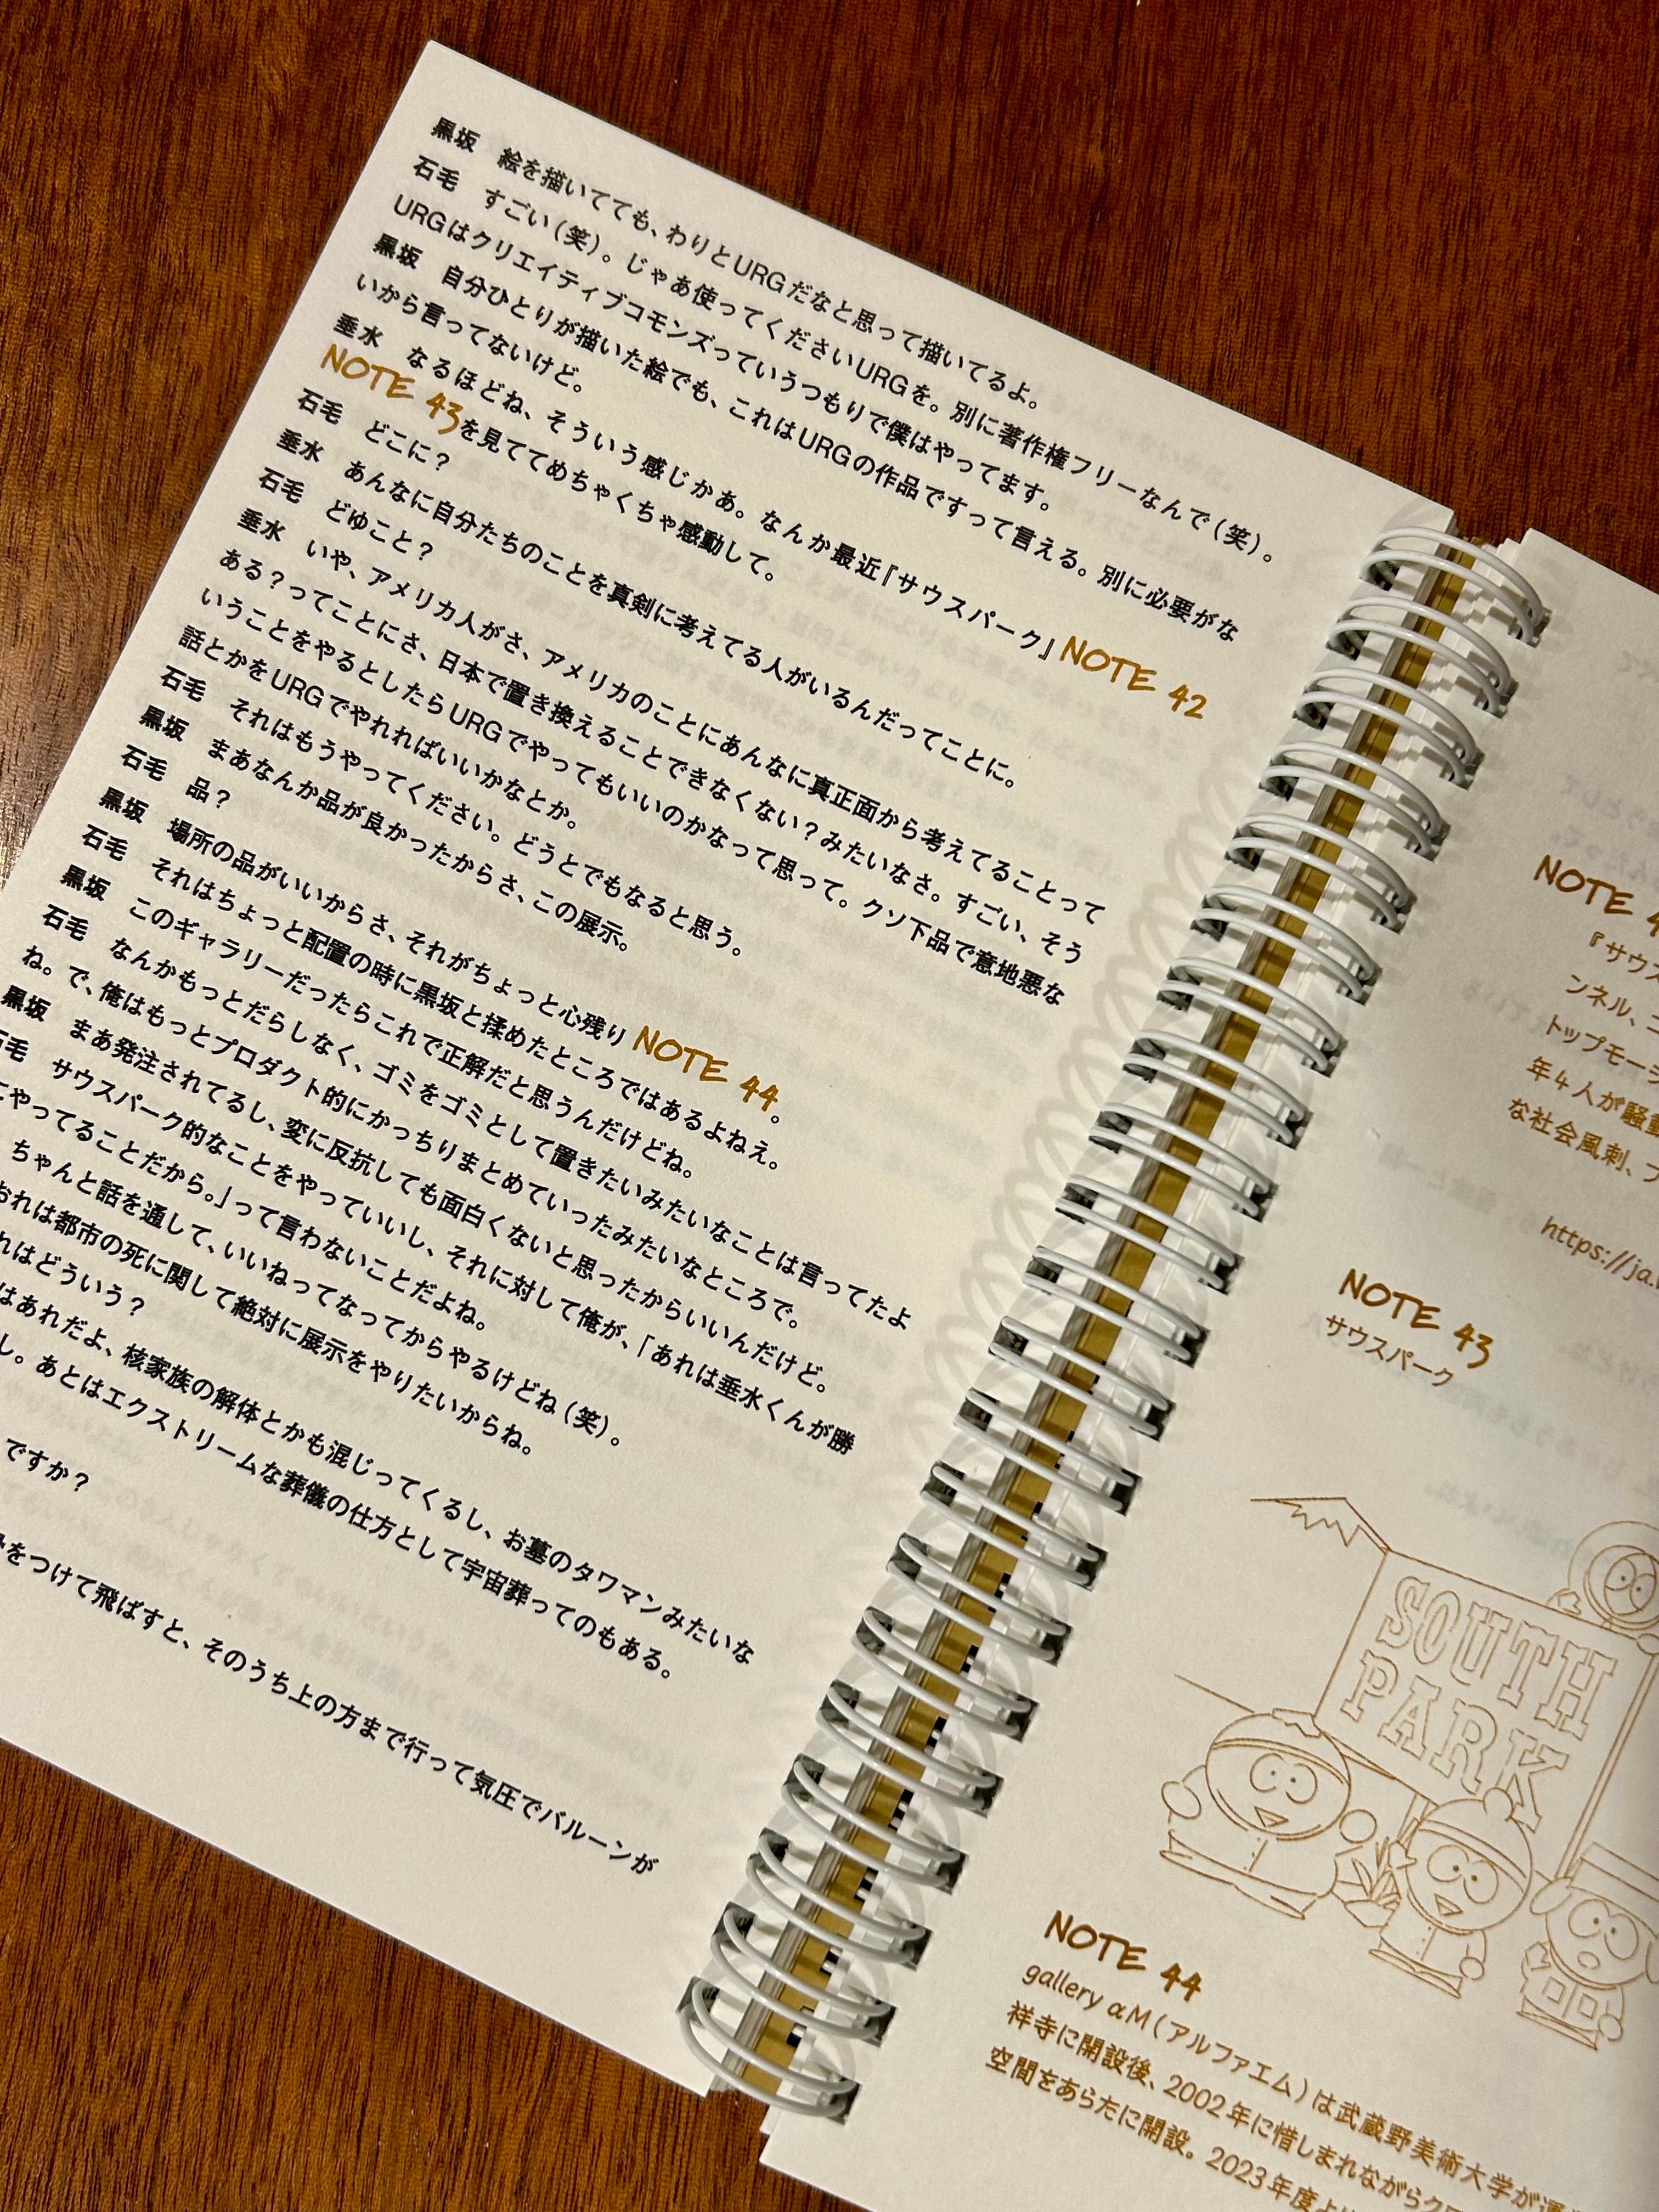 黒坂　絵を描いてても、わりとURGだなと思って描いてるよ。
石毛　すごい（笑）。じゃあ使ってくださいURGを。別に著作権フリーなんで（笑）。
URGはクリエイティブコモンズっていうつもりで僕はやってます。
黒坂　自分ひとりが描いた絵でも、これはURGの作品ですって言える。別に必要がな
いから言ってないけど。
垂水　なるほどね、そういう感じかあ。なんか最近『サウスパーク』NOTE 42
NOTE 43を見ててめちゃくちゃ感動して。
石毛　どこに？
垂水　あんなに自分たちのことを真剣に考えてる人がいるんだってことに。
石毛　どゆこと？
垂水　いや、アメリカ人がさ、アメリカのことにあんなに真正面から考えてることって
ある？ってことにさ、日本で置き換えることできなくない？みたいなさ。すごい、そう
いうことをやるとしたらURGでやってもいいのかなって思って。クソ下品で意地悪な
話とかをURGでやれればいいかなとか。
石毛　それはもうやってください。どうとでもなると思う。
黒坂　まあなんか品が良かったからさ、この展示。
石毛　品？
黒坂　場所の品がいいからさ、それがちょっと心残りNOTE 44。
石毛　それはちょっと配置の時に黒坂と揉めたところではあるよねえ。
黒坂　このギャラリーだったらこれで正解だと思うんだけどね。
石毛　なんかもっとだらしなく、ゴミをゴミとして置きたいみたいなことは言ってたよ
ね。で、俺はもっとプロダクト的にかっちりまとめていったみたいなところで。
黒坂　まあ発注されてるし、変に反抗しても面白くないと思ったからいいんだけど。
石毛　サウスパーク的なことをやっていいし、それに対して俺が、「あれは垂水くんが勝
にやってることだから。」って言わないことだよね。
ちゃんと話を通して、いいねってなってからやるけどね（笑）。
おれは都市の死に関して絶対に展示をやりたいからね。
れはどういう？
はあれだよ、核家族の解体とかも混じってくるし、お墓のタワマンみたいな
し。あとはエクストリームな葬儀の仕方として宇宙葬ってのもある。
ですか？
をつけて飛ばすと、そのうち上の方まで行って気圧でバルーンが
NOTE 4
『サウス
ンネル、コ
トップモーシ
年4人が騒動
な社会風刺、ブ
https://ja.
NOTE 43
サウスパーク
SOUTH
PARK
NOTE 44
gallery αM（アルファエム）は武蔵野美術大学が運
祥寺に開設後、2002年に惜しまれながらクロ
空間をあらたに開設。2023年度より